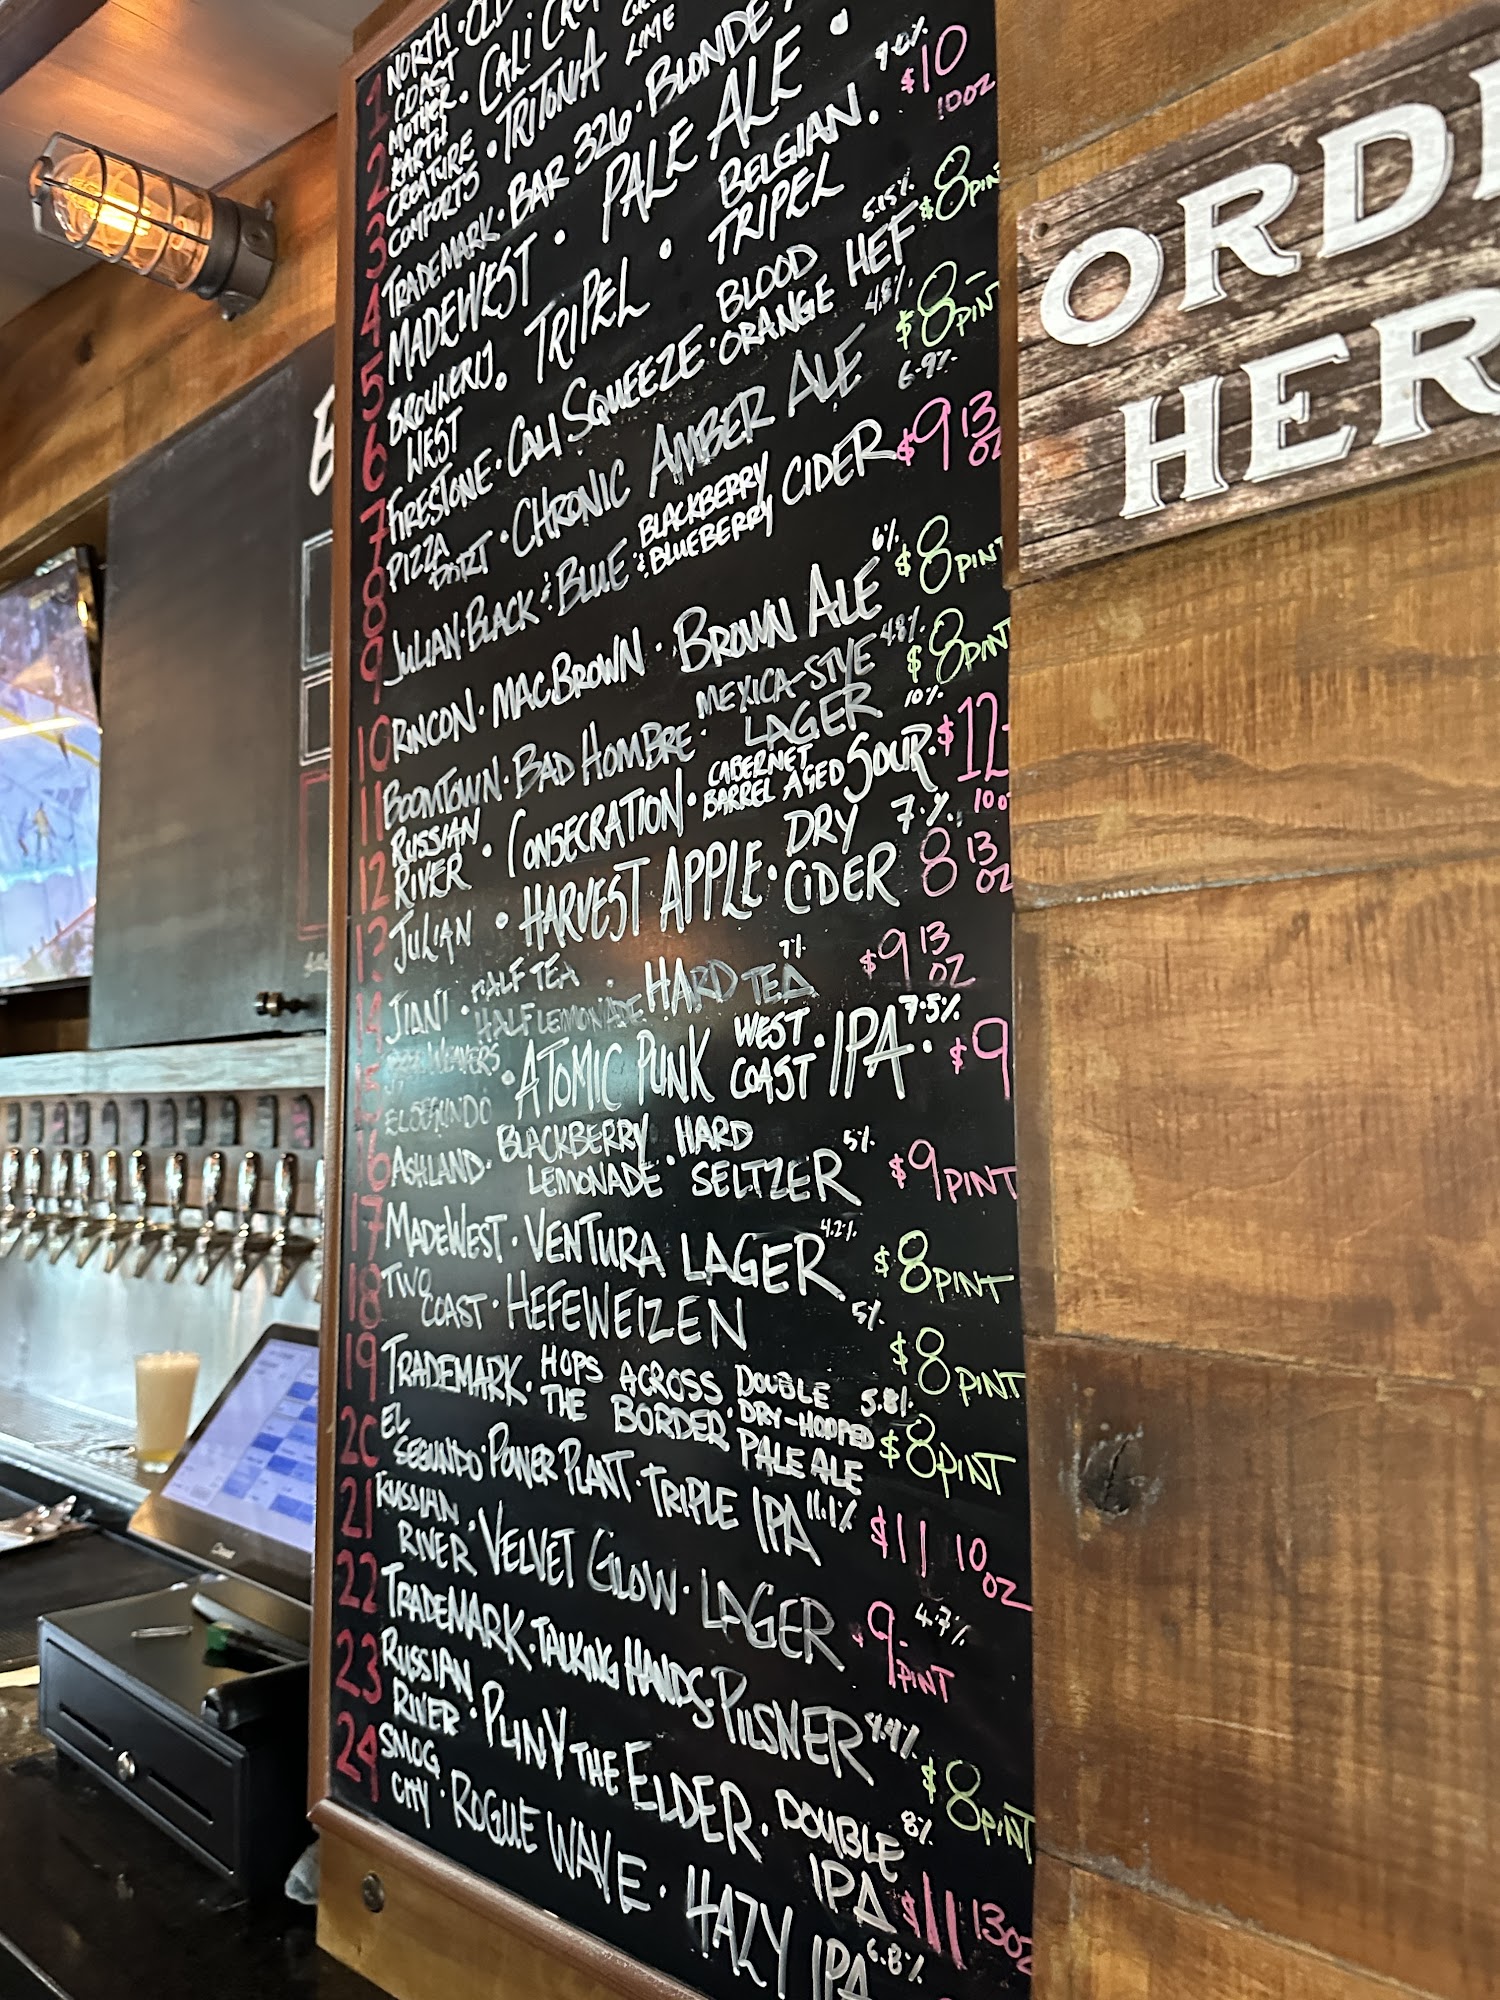 1 NORTH COAST · OLD
2 MOTHER EARTH · CALI
3 CREATURE COMFORTS · TRITONIA LIME
4 TRADEMARK · BAR 326 · BLONDE
5 MADEWEST · PALE ALE ·
6 BROUWERIJ WEST · TRIPEL · BELGIAN TRIPEL · 9.0% $10 10OZ
7 FIRESTONE · CALI SQUEEZE · BLOOD ORANGE HEF 5.15% $8 PIN
8 PIZZA PORT · CHRONIC AMBER ALE 4.8% $8 PINT
9 JULIAN · BLACK & BLUE · BLACKBERRY & BLUEBERRY CIDER 6.9% $9 13 OZ
10 RINCON · MACBROWN · BROWN ALE 6% $8 PINT
11 BOOMTOWN · BAD HOMBRE · MEXICA-STYE LAGER 4.8% $8 PINT
12 RUSSIAN RIVER · CONSECRATION · CABERNET BARREL AGED SOUR · 10% $12 10O
13 JULIAN · HARVEST APPLE · DRY CIDER 7.% 8 13 OZ
14 JIANT · HALF TEA HALF LEMONADE · HARD TEA 7% $9 13 OZ
15 EL SEGUNDO · ATOMIC PUNK WEST COAST · IPA · 7.5% $9
16 ASHLAND · BLACKBERRY LEMONADE · HARD SELTZER 5% $9 PINT
17 MADEWEST · VENTURA LAGER 4.2% $8 PINT
18 TWO COAST · HEFEWEIZEN 5% $8 PINT
19 TRADEMARK · HOPS ACROSS THE BORDER · DOUBLE DRY-HOPPED PALE ALE 5.8% $8 PINT
20 EL SEGUNDO · POWER PLANT · TRIPLE IPA 11.1% $11 10 OZ
21 RUSSIAN RIVER · VELVET GLOW · LAGER 4.7% $9 PINT
22 TRADEMARK · TALKING HANDS · PILSNER 4.4% $8 PINT
23 RUSSIAN RIVER · PLINY THE ELDER · DOUBLE IPA 8% $11 13OZ
24 SMOG CITY · ROGUE WAVE · HAZY IPA 6.8%
ORDE
HER